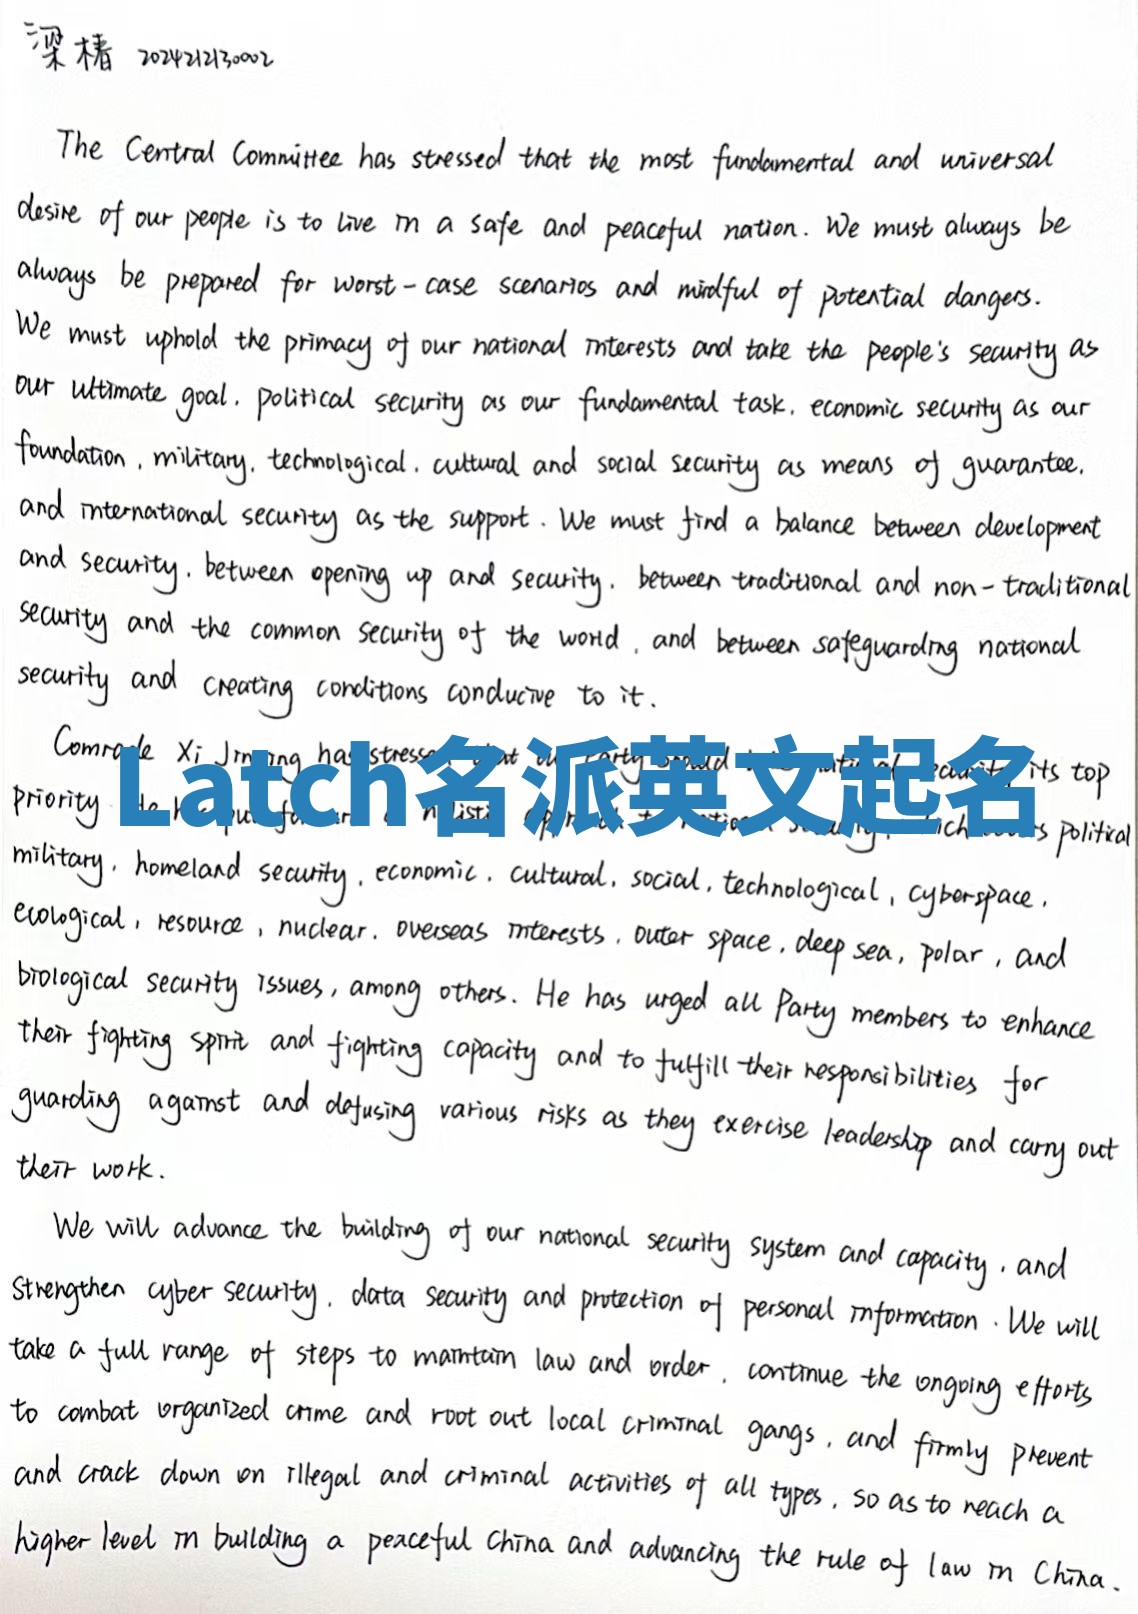 梁椿 2024212130002
The Central Committee has stressed that the most fundamental and universal
desire of our people is to live in a safe and peaceful nation. We must always be
always be prepared for worst-case scenarios and mindful of potential dangers.
We must uphold the primacy of our national interests and take the people's security as
our ultimate goal, political security as our fundamental task, economic security as our
foundation, military, technological, cultural and social security as means of guarantee,
and international security as the support. We must find a balance between development
and security, between opening up and security, between traditional and non-traditional
security and the common security of the world, and between safeguarding national
security and creating conditions conducive to it.
Comrade Xi Jinping has stressed that its top
Latch名派英文起名
priority political
military, homeland security, economic, cultural, social, technological, cyberspace,
ecological, resource, nuclear, overseas interests, outer space, deep sea, polar, and
biological security issues, among others. He has urged all Party members to enhance
their fighting spirit and fighting capacity and to fulfill their responsibilities for
guarding against and defusing various risks as they exercise leadership and carry out
their work.
We will advance the building of our national security system and capacity, and
strengthen cyber security, data security and protection of personal information. We will
take a full range of steps to maintain law and order, continue the ongoing efforts
to combat organized crime and root out local criminal gangs, and firmly prevent
and crack down on illegal and criminal activities of all types, so as to reach a
higher level in building a peaceful China and advancing the rule of law in China.